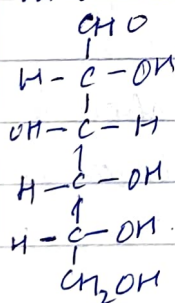 CHO
H-C-OH
OH-C-H
H-C-OH
H-C-OH
CH₂OH